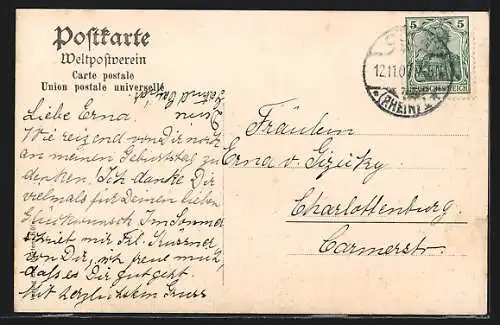 Postkarte
Weltpostverein
Carte postale
Union postale universelle
5 5
DEUTSCHES REICH
12.11.0
(RHEIN)
Liebe Erna.
Wie reizend von Dir noch
an meinen Geburtstag zu
denken. Ich danke Dir
vielmals für Deinen lieben
Glückwunsch. Im Sommer
schrieb mir Frl. Küssner
von Dir, ich freue mich,
dass es Dir gut geht.
Mit herzlichsten Gruss
Fräulein
Erna von Gizycky.
Charlottenburg.
Carmerstr.